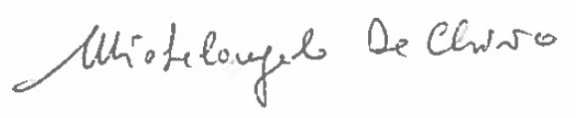 Michelangelo De Chirico